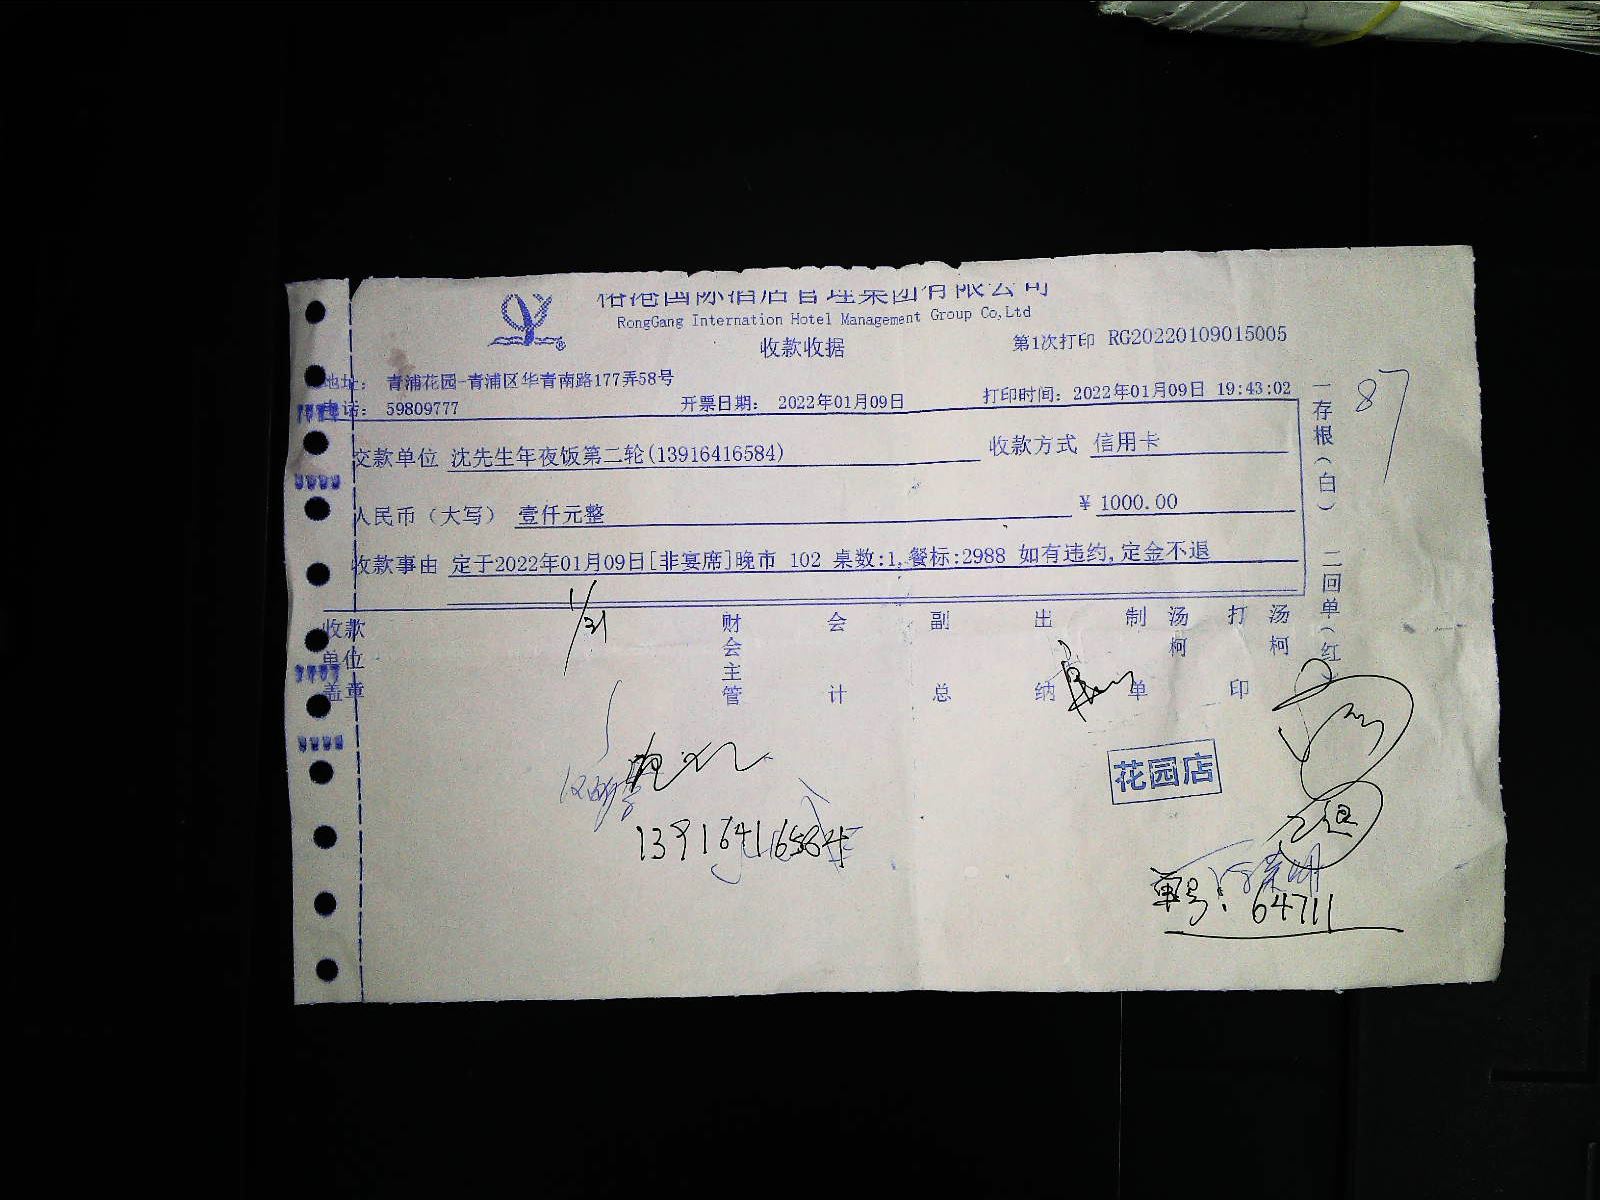 裕港国际酒店管理集团有限公司
RongGang Internation Hotel Management Group Co,Ltd
收款收据
第1次打印 RG20220109015005
地址： 青浦花园-青浦区华青南路177弄58号
电话： 59809777
开票日期： 2022年01月09日
打印时间：2022年01月09日 19:43:02
交款单位 沈先生年夜饭第二轮(13916416584)
收款方式 信用卡
人民币（大写） 壹仟元整
¥ 1000.00
收款事由 定于2022年01月09日[非宴席]晚市 102 桌数:1,餐标:2988 如有违约,定金不退
一存根（白） 二回单（红）
87
1/31
收款单位盖章
财会主管
会计
副总
出纳
制单
汤柯
打印
汤柯
花园店
13916416584
单号: 64711